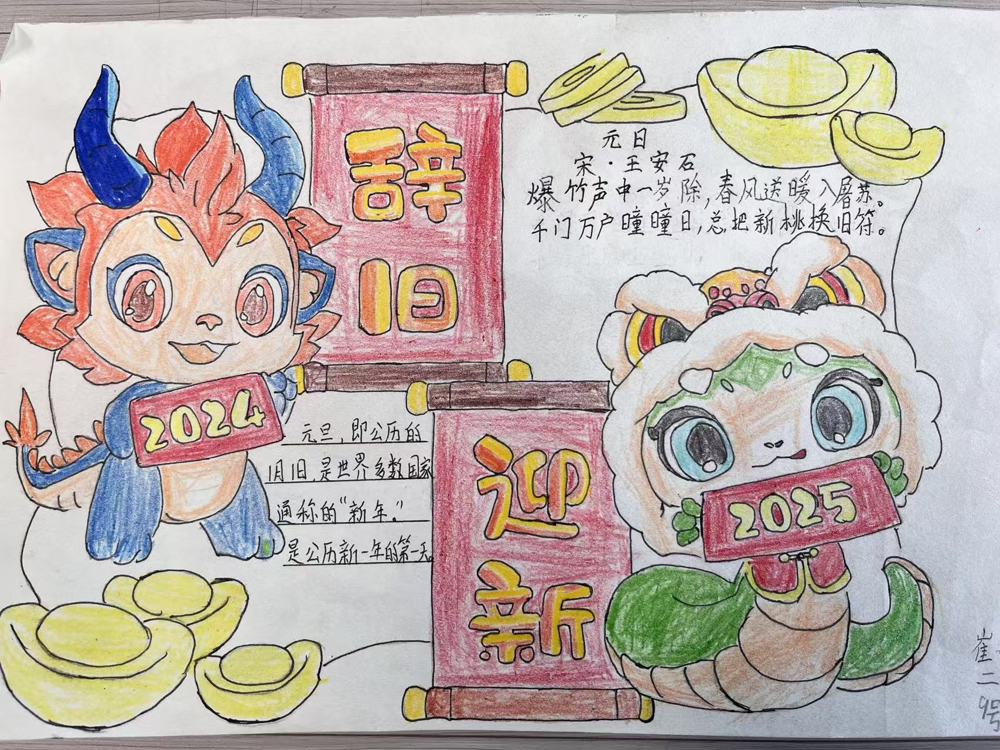 辞旧
元日
宋·王安石
爆竹声中一岁除,春风送暖入屠苏。
千门万户曈曈日,总把新桃换旧符。
2024
元旦,即公历的
1月1日,是世界多数国家
通称的“新年”.
是公历新一年的第一天
迎新
2025
崔
二
9号